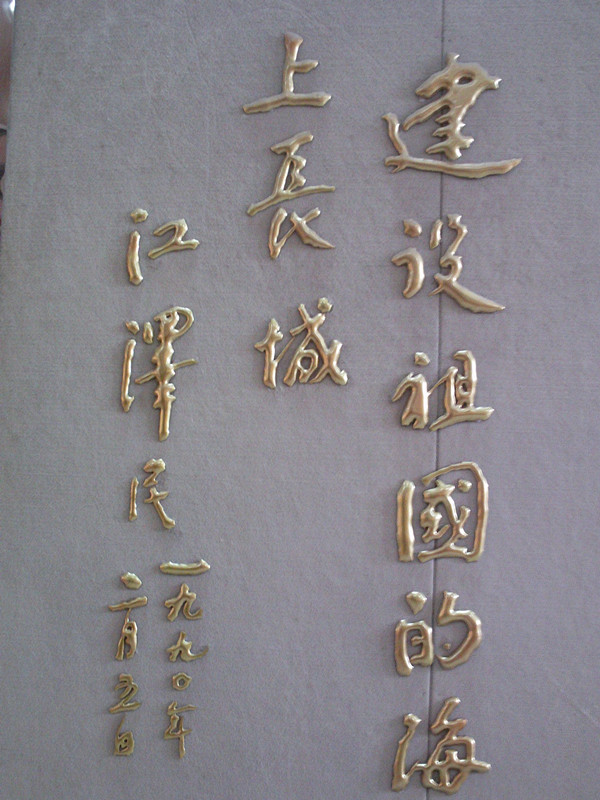 建设祖國的海
上長城
江澤民
一九九〇年
二月五日